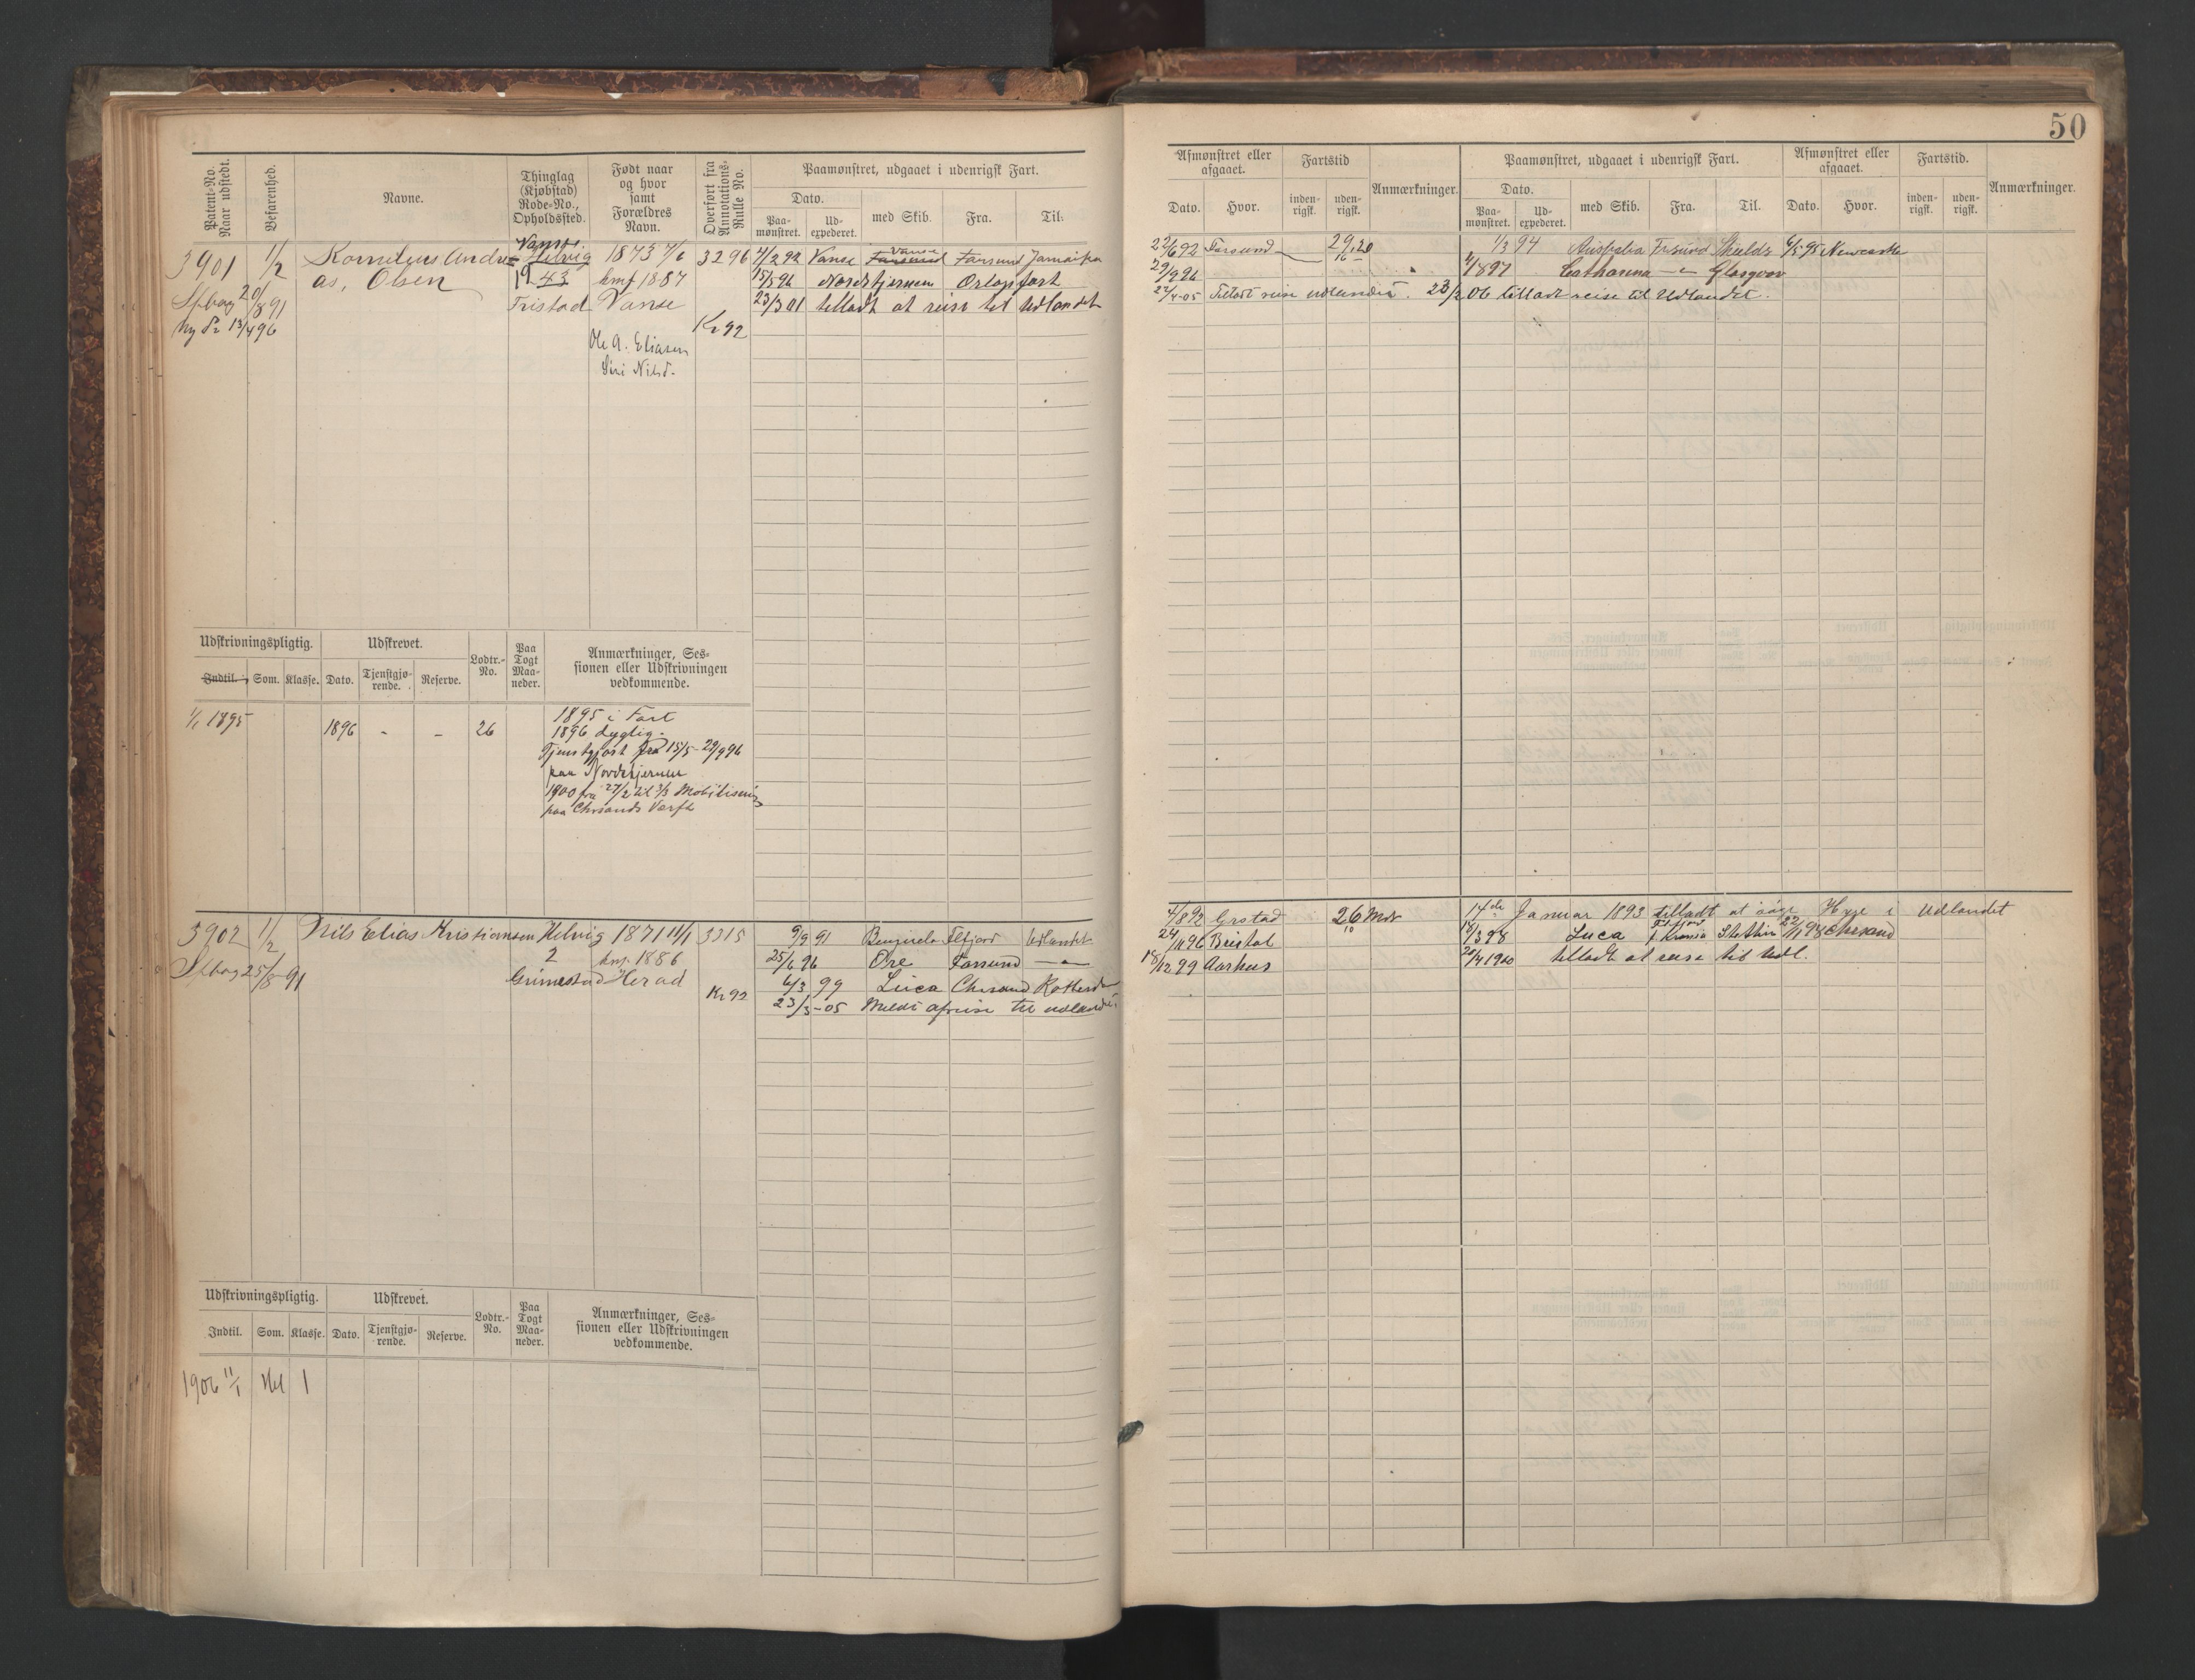 50
Patent-No.
Naar udstedt.
Befarenhed.
Navne.
Thinglag
(Kjøbstad)
Rode-No.,
Opholdssted.
Født naar
og hvor
samt
Forældres
Navn.
Overført fra
Annotations-
Rulle No.
Paamønstret, udgaaet i udenrigsk Fart.
Dato.
Paa-
mønstret.
Ud-
expederet.
med Skib.
Fra.
Til.
Afmønstret eller
afgaaet.
Dato.
Hvor.
Fartstid
inden-
rigsk.
uden-
rigsk.
Anmærkninger.
Paamønstret, udgaaet i udenrigsk Fart.
Dato.
Paa-
mønstret.
Ud-
expederet.
med Skib.
Fra.
Til.
Afmønstret eller
afgaaet.
Dato.
Hvor.
Fartstid.
inden-
rigsk.
uden-
rigsk.
Anmærkninger.
3901 1/2 Kornelius Andre-
as, Olsen
20/8 91
Ny Pt 13/4 96
Vanse.
Helvig
19 43
Tristad
1873 7/6
knf 1887
Vanse
Ole A. Eliasen
Siri Nilsd.
3296
Kr 92
4/2 92 Vanse Farsund Vanse Farsund Jamaika
15/5 96 Nordstjernen Orlogsfart
23/3 01 tilladt at reise til Udlandet
22/6 92 Farsund 29/16 20
29/9 96
22/4-05 Tilladt reise udlandet.
1/3 94 Australia Farsund Shields 6/5 95 Newcastle
4/1 897 Catharina — " — Glasgow
23/2 06 tilladt reise til Udlandet.
Udskrivningspligtig.
Indtil.
Som.
Klasse.
Udskrevet.
Dato.
Tjenstgjø-
rende.
Reserve.
Lodtr.-
No.
Paa
Togt
Maa-
neder.
Anmærkninger, Ses-
sionen eller Udskrivningen
vedkommende.
1/1 1895 1896 - - 26
1895 i Fart
1896 dygtig.
Tjenstgjort fra 15/5-29/9 96
paa Nordstjernen
1900 fra 27/2 til 3/3 Mobilisering
paa Chrsands Verft
3902 1/2 Nils Elias Kristiansen
25/8 91
Helvig
2
Grimestad
1871 11/1
knf. 1886
Herad
3315
Kr 92
9/9 91 Flfjord Udlandet
25/6 96 Ore Farsund — " —
6/3 99 Luca Chrsand Rotterdam
23/3-05 Meldt afreise til udlandet
4/8 92 Grstad 26/10 Mdr
24/11 96 Bristol
18/12 99 Aarhus
14de Januar 1893 tilladt at søge Hyre i Udlandet
18/3 98 Luca Flfjord f. Krania Stettin 22/11 98 Chrsand
20/4 1900 tilladt at reise til Udl.
Udskrivningspligtig.
Indtil.
Som.
Klasse.
Udskrevet.
Dato.
Tjenstgjø-
rende.
Reserve.
Lodtr.-
No.
Paa
Togt
Maa-
neder.
Anmærkninger, Ses-
sionen eller Udskrivningen
vedkommende.
1906 11/1 Hel 1